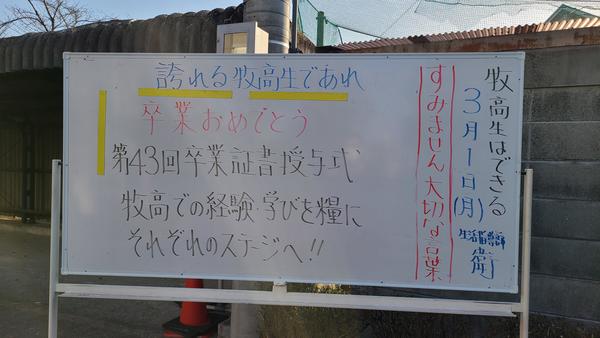 誇れる牧高生であれ
卒業おめでとう
第43回卒業証書授与式
牧高での経験・学びを糧に
それぞれのステージへ!!
牧高生はできる
3月1日(月)
すみません 大切な言葉